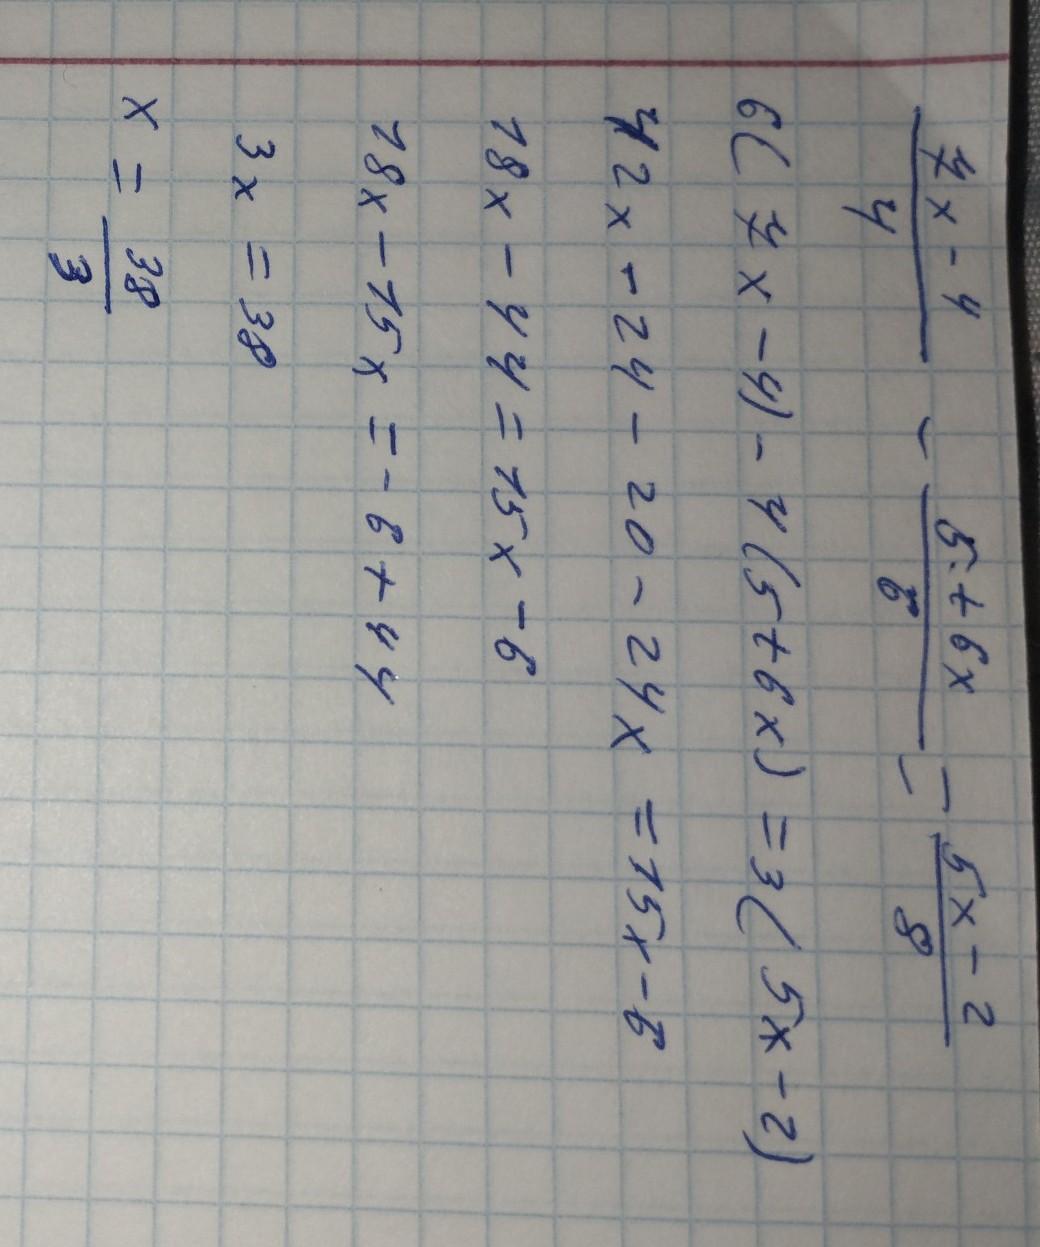 (7x-4)/4 - (5+6x)/6 = (5x-2)/8
6(7x-4)-4(5+6x)=3(5x-2)
42x-24-20-24x=15x-6
18x-44=15x-6
18x-15x=-6+44
3x=38
x=38/3